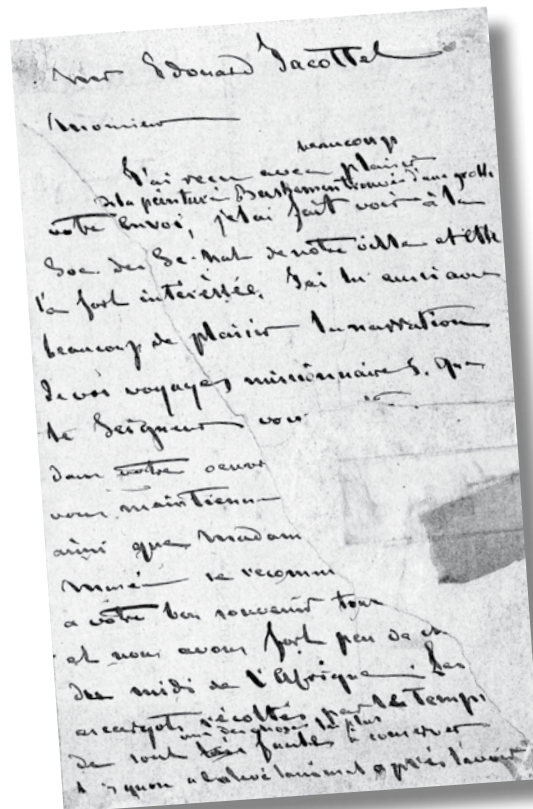 Mr Edouard Jacottet
Monsieur
beaucoup
J'ai reçu avec plaisir
de la peinture Bushemen trouvée d'une grotte
votre envoi, je l'ai fait voir à la
Soc. des Sc. nat. de notre ville et elle
l'a fort intéressée. J'ai lu aussi avec
beaucoup de plaisir la narration
de vos voyages missionnaires. que
le Seigneur vous
dans votre oeuvre
vous maintienne
ainsi que Madam
se recomm
à votre bon souvenir
et nous avons fort peu de
du midi de l'Afrique. Les
escargots récoltés par le temps
de sont faciles à conserver
qu'on a enlevé l'animal après l'avoir